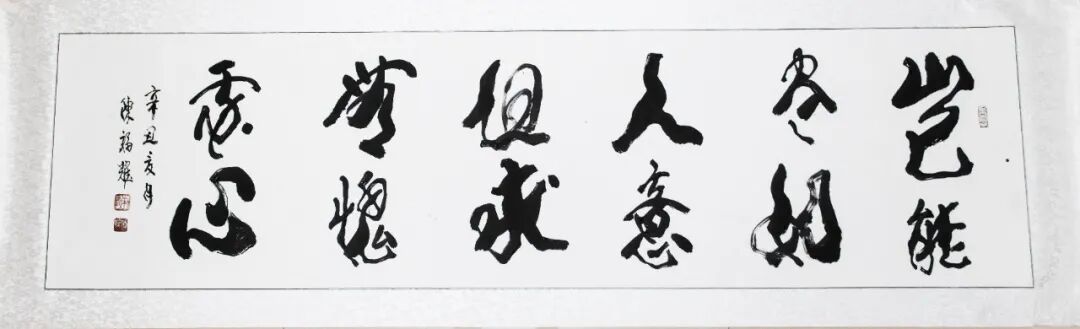 岂能
尽如
人意
但求
無愧
心
辛丑夏月
陳福耀